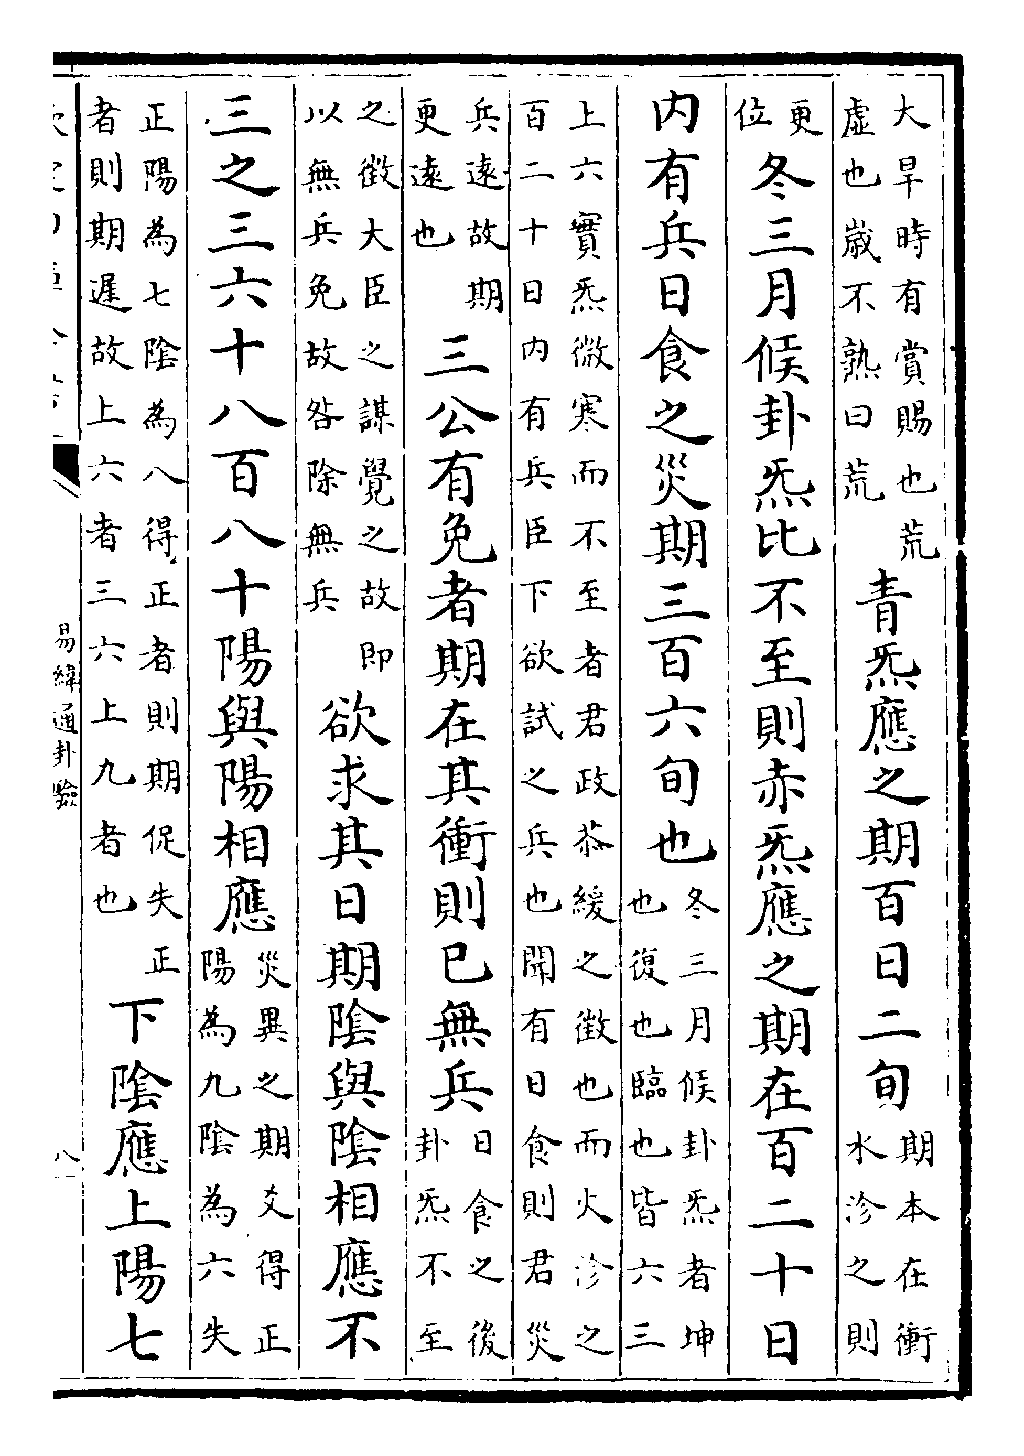 大旱時有賞賜也荒
虛也歲不熟曰荒
青炁應之期百日二旬
期本在衝
水沴之則
更
位
冬三月候卦炁比不至則赤炁應之期在百二十日
内有兵日食之災期三百六旬也
冬三月候卦炁者坤
也復也臨也皆六三
上六實炁微寒而不至者君政茶緩之徵也而火沴之
百二十日内有兵臣下欲試之兵也聞有日食則君災
兵遠故期
更遠也
三公有免者期在其衝則已無兵
日食之後
卦炁不至
之徵大臣之謀覺之故即
以無兵免故咎除無兵
欲求其日期陰與陰相應不
三之三六十八百八十陽與陽相應
災異之期爻得正
陽為九陰為六失
正陽為七陰為八得正者則期促失正
者則期遲故上六者三六上九者也
下陰應上陽七
易緯通卦驗
八